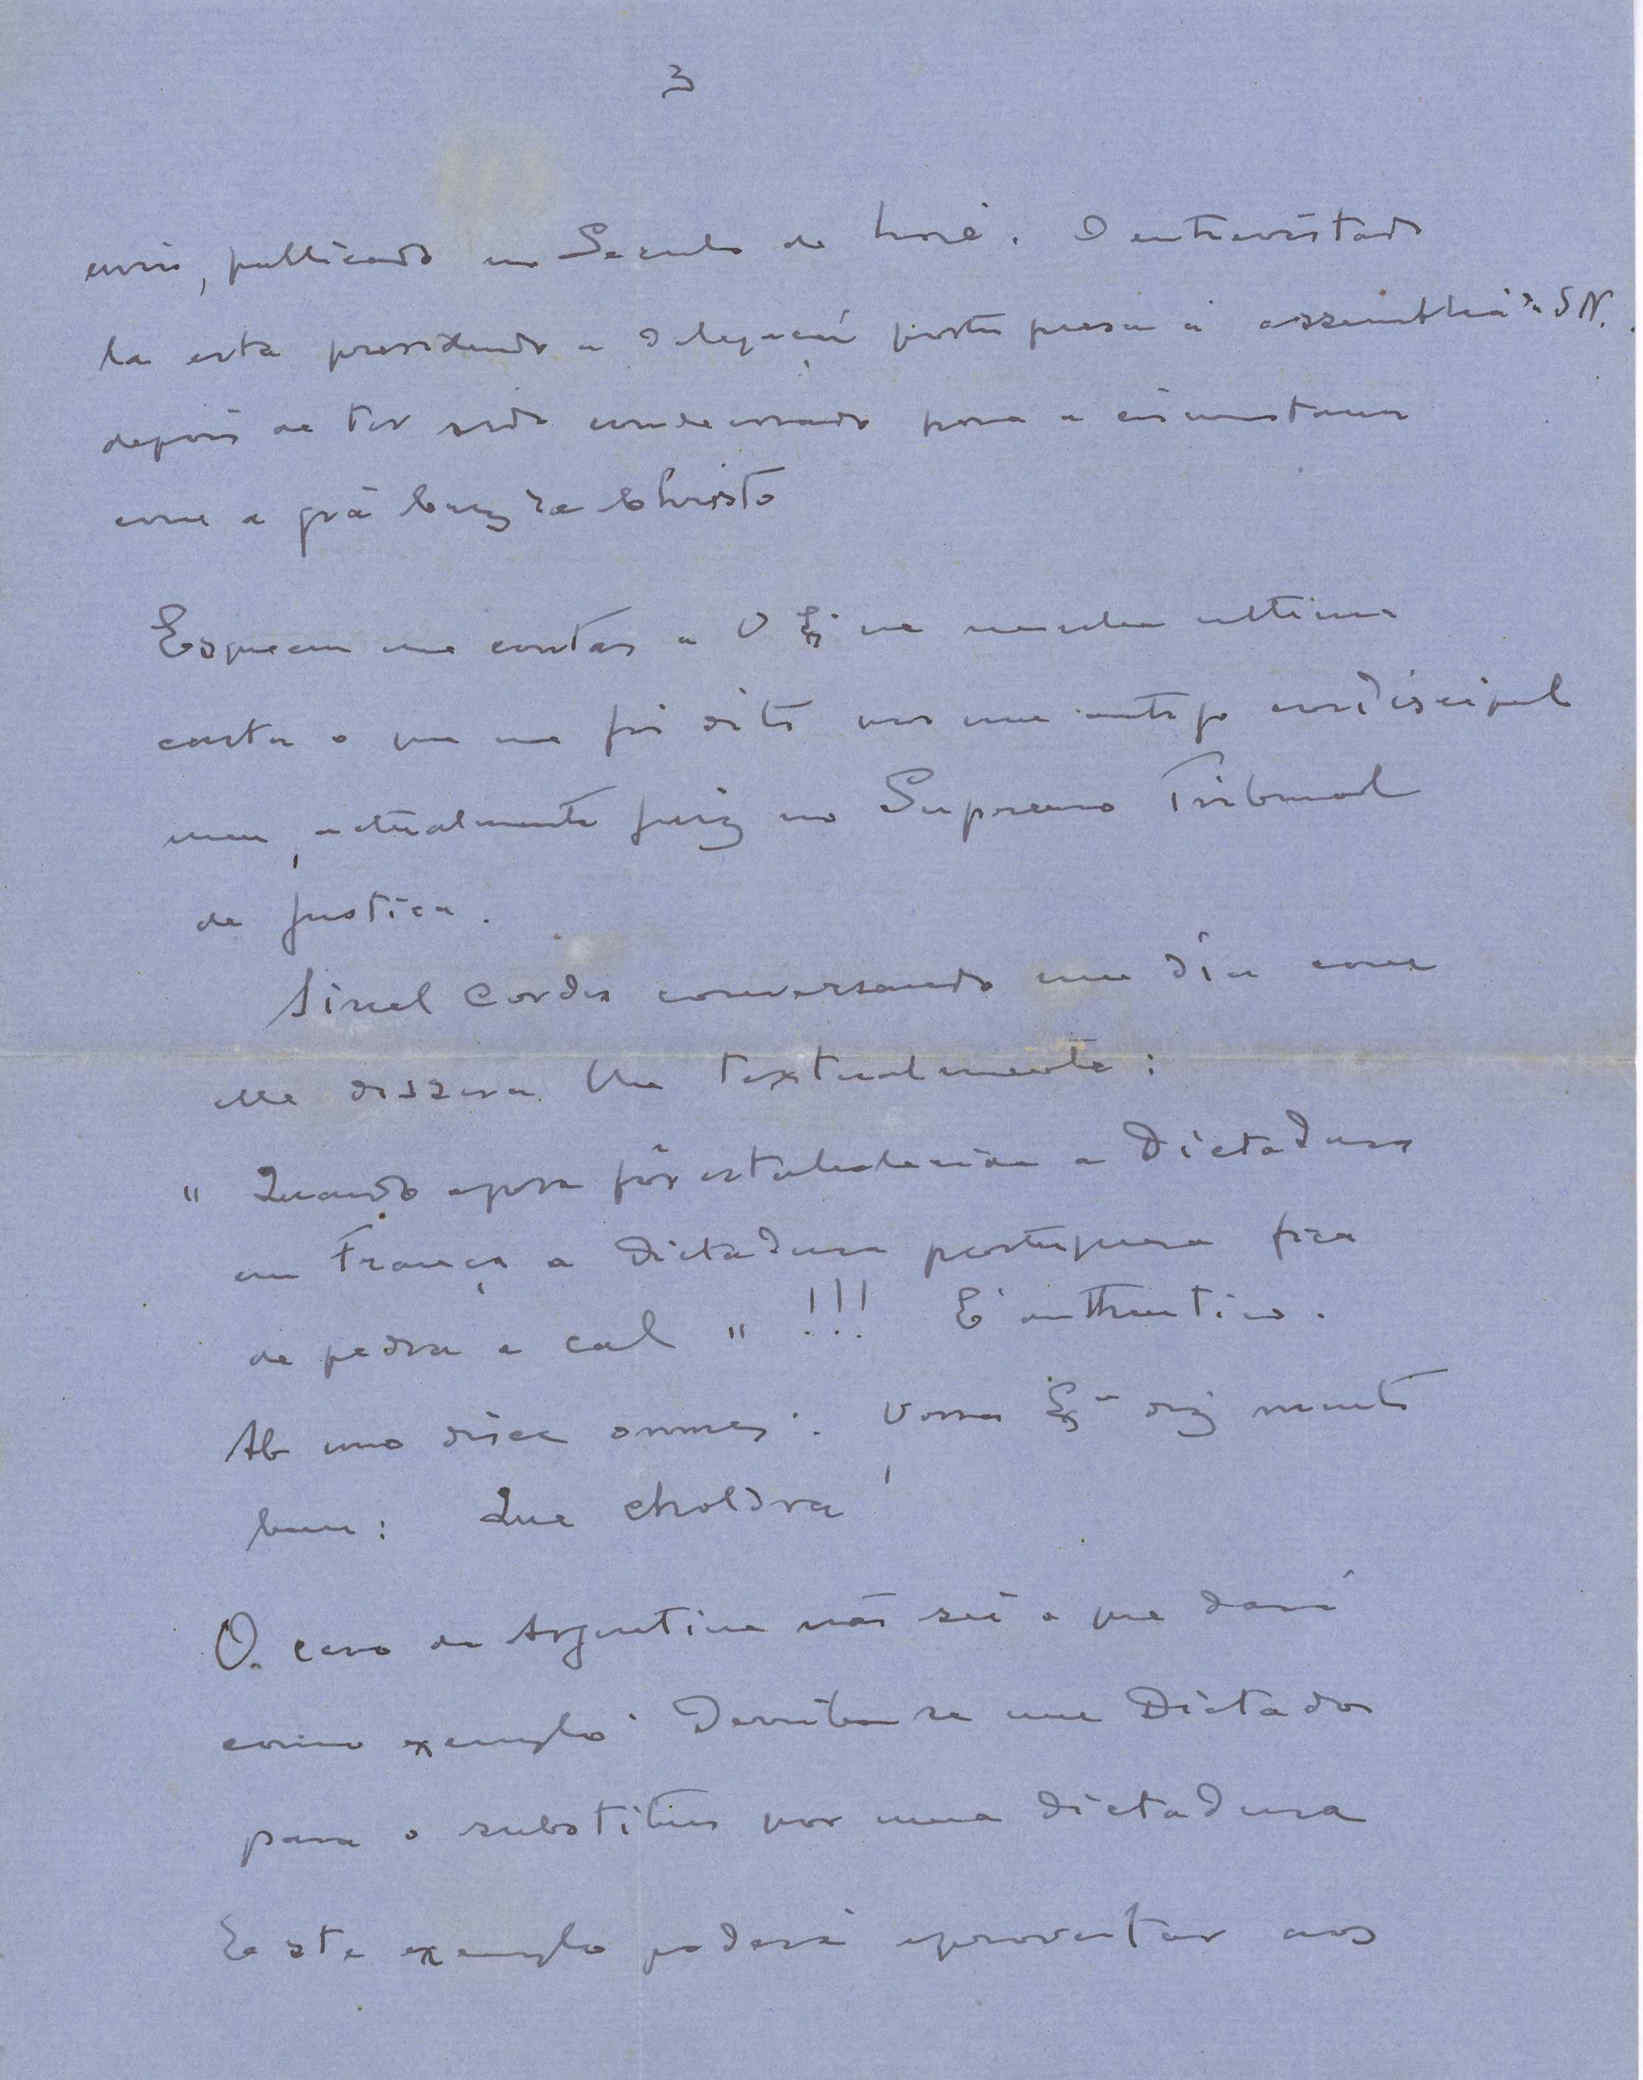 3
envio, publicado no Seculo de hoje. O entrevistado
la está presidindo a delegação portuguesa á assemblêa da S N.
depois de ter sido condecorado para a circunstancia
com a grã Cruz de Christo
Esqueceu me contar a V Exª na minha ultima
carta o que me foi dito por um antigo condiscipulo
meu, actualmente juiz no Supremo Tribunal
de Justica.
Sinel Cordes conversando um dia com
elle dissera lhe textualmente:
" Quando agora fôr estabelecida a Dictadura
em França a Dictadura portuguesa fica
de pedra e cal " !!! E' authentico.
Ab uno disce omnes. Vossa Exª diz muito
bem: Que choldra!
O caso da Argentina não sei o que dará
como exemplo. Derriba se um Dictador
para o substituir por uma dictadura
Este exemplo poderá aproveitar aos